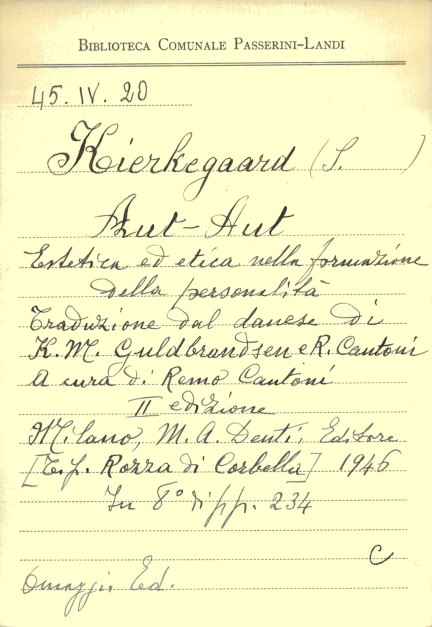 BIBLIOTECA COMUNALE PASSERINI-LANDI
45. IV. 20
Kierkegaard (S. )
Aut-Aut
Estetica ed etica nella formazione
della personalità
Traduzione dal danese di
K. M. Guldbrandsen e R. Cantoni
A cura di Remo Cantoni
II edizione
Milano, M. A. Denti, Editore
[Tip. Rozza di Corbella] 1946
In 8° di pp. 234
C
Omaggio Ed.